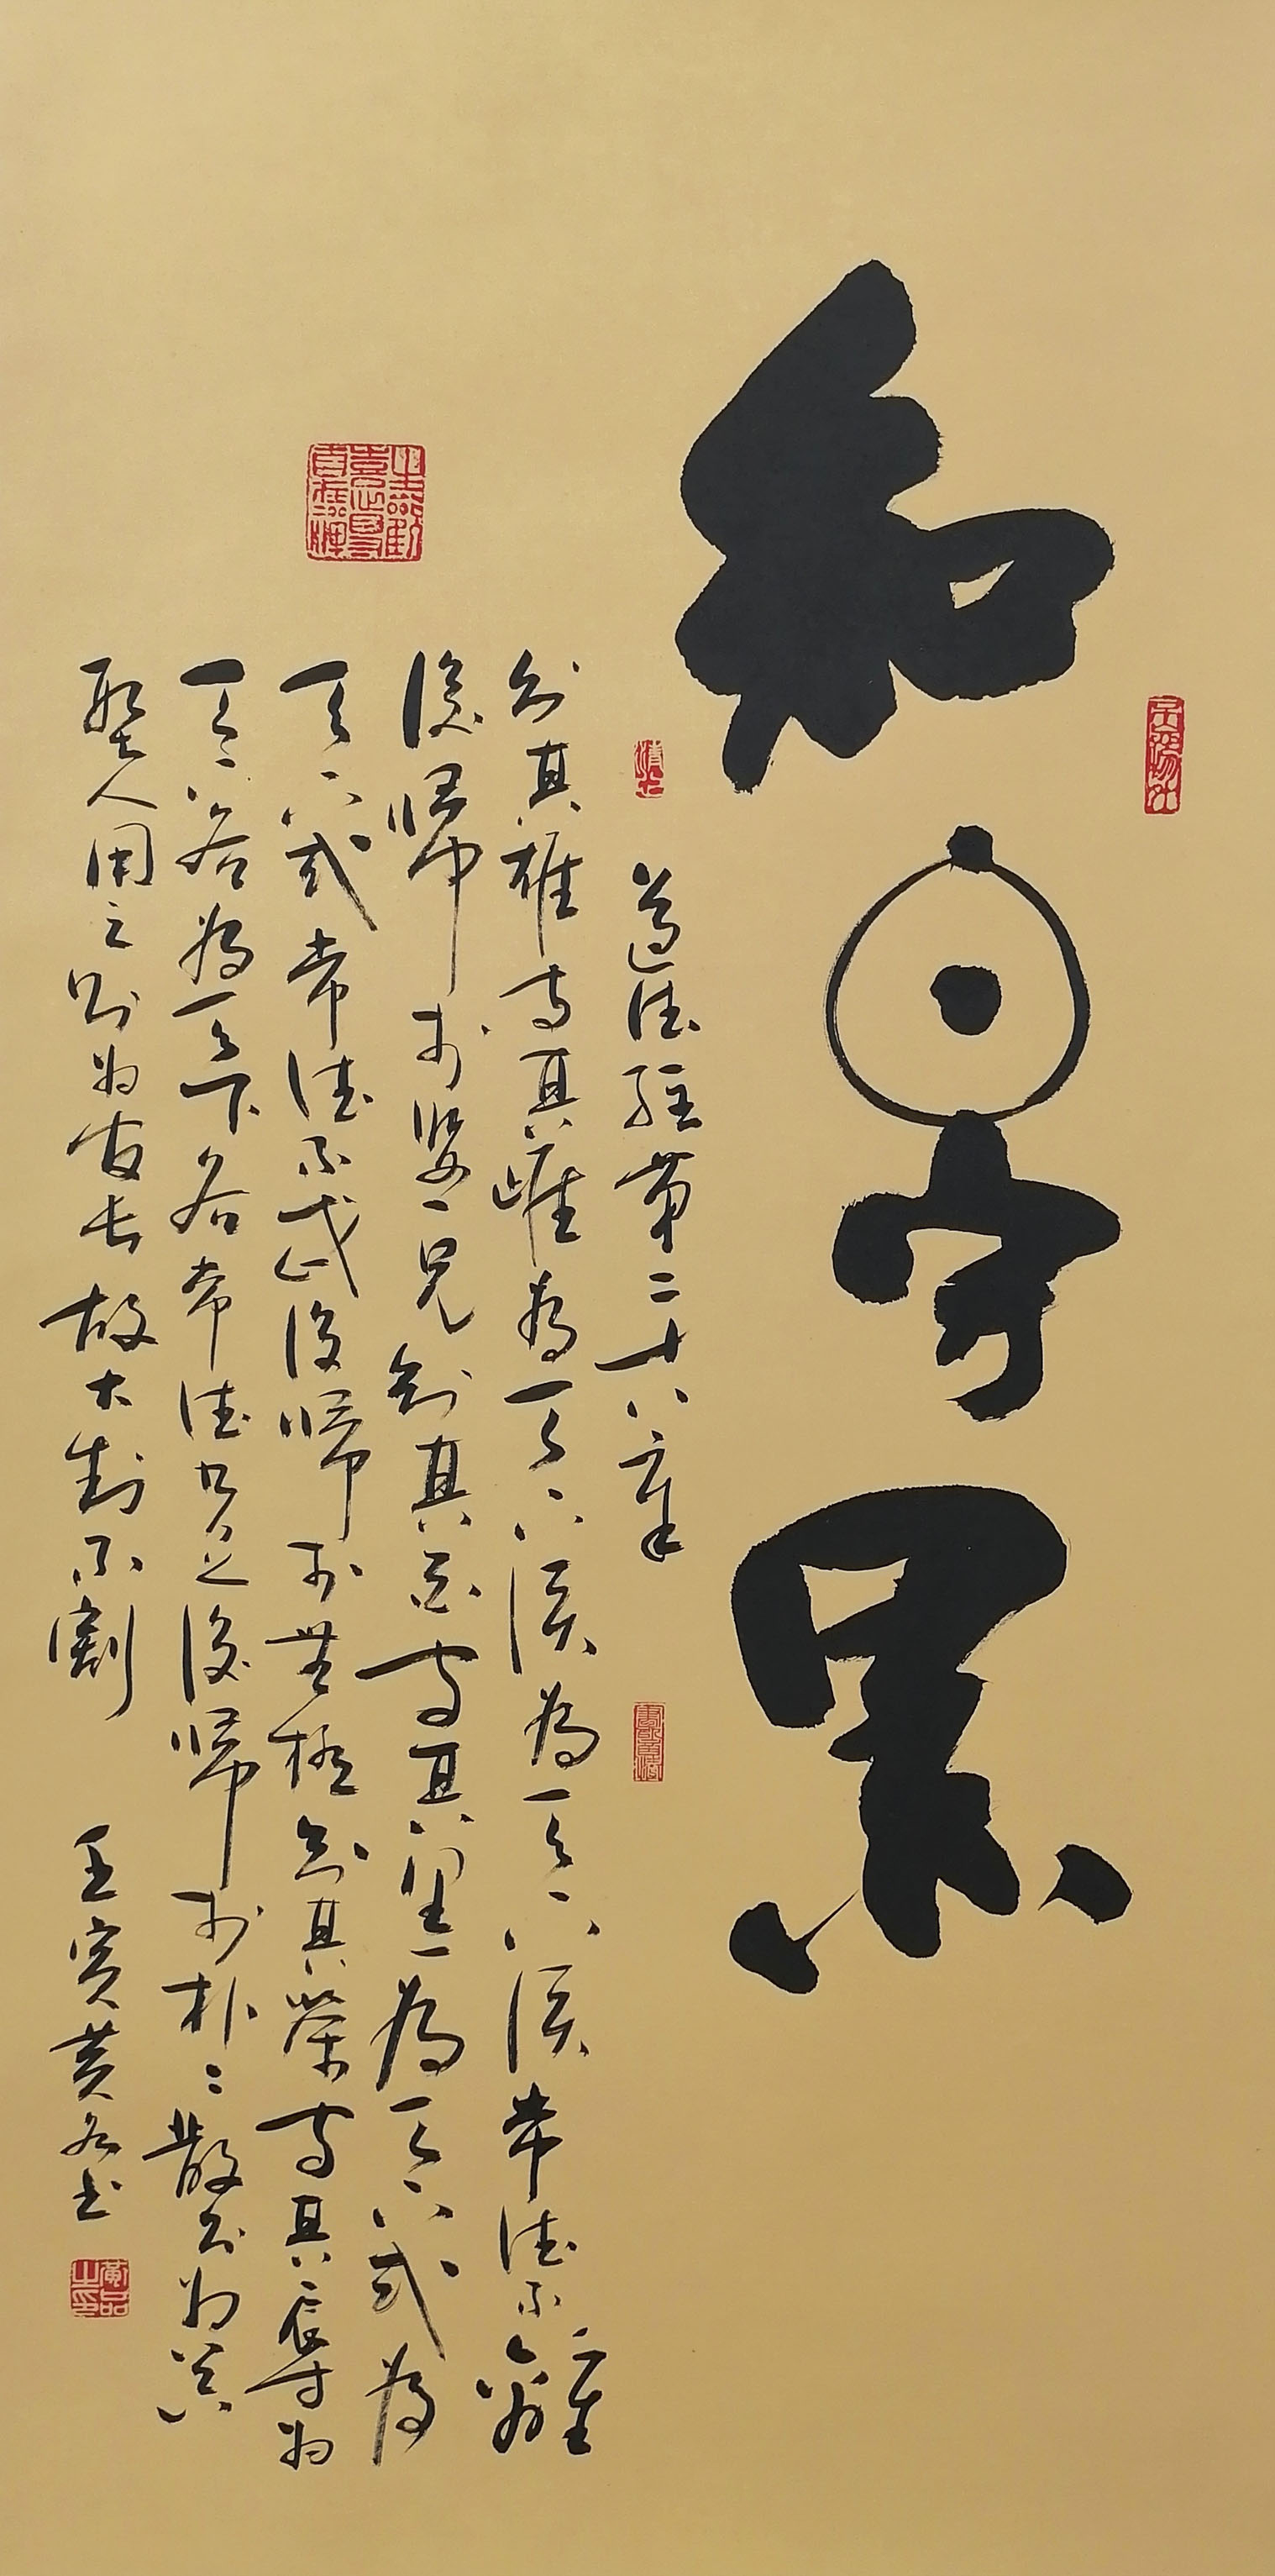 知白守黑
道德經第二十八章
知其雄守其雌為天下溪為天下溪常德不離
復歸於嬰兒知其白守其黑為天下式為
天下式常德不忒復歸於無極知其榮守其辱为
天下谷為天下谷常德乃足復歸於朴〻散则为器
聖人用之则为官长故大制不割
壬寅黄书